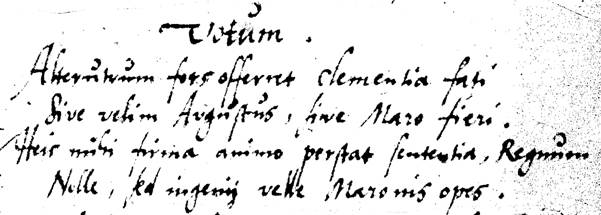 Votum.
Alterutrum fors offerret clementia fati
Sive velim Augustus, sive Maro fieri.
Heic mihi firma animo perstat sententia, Regnum
Nolle, sed ingenij velle Maronis opes.